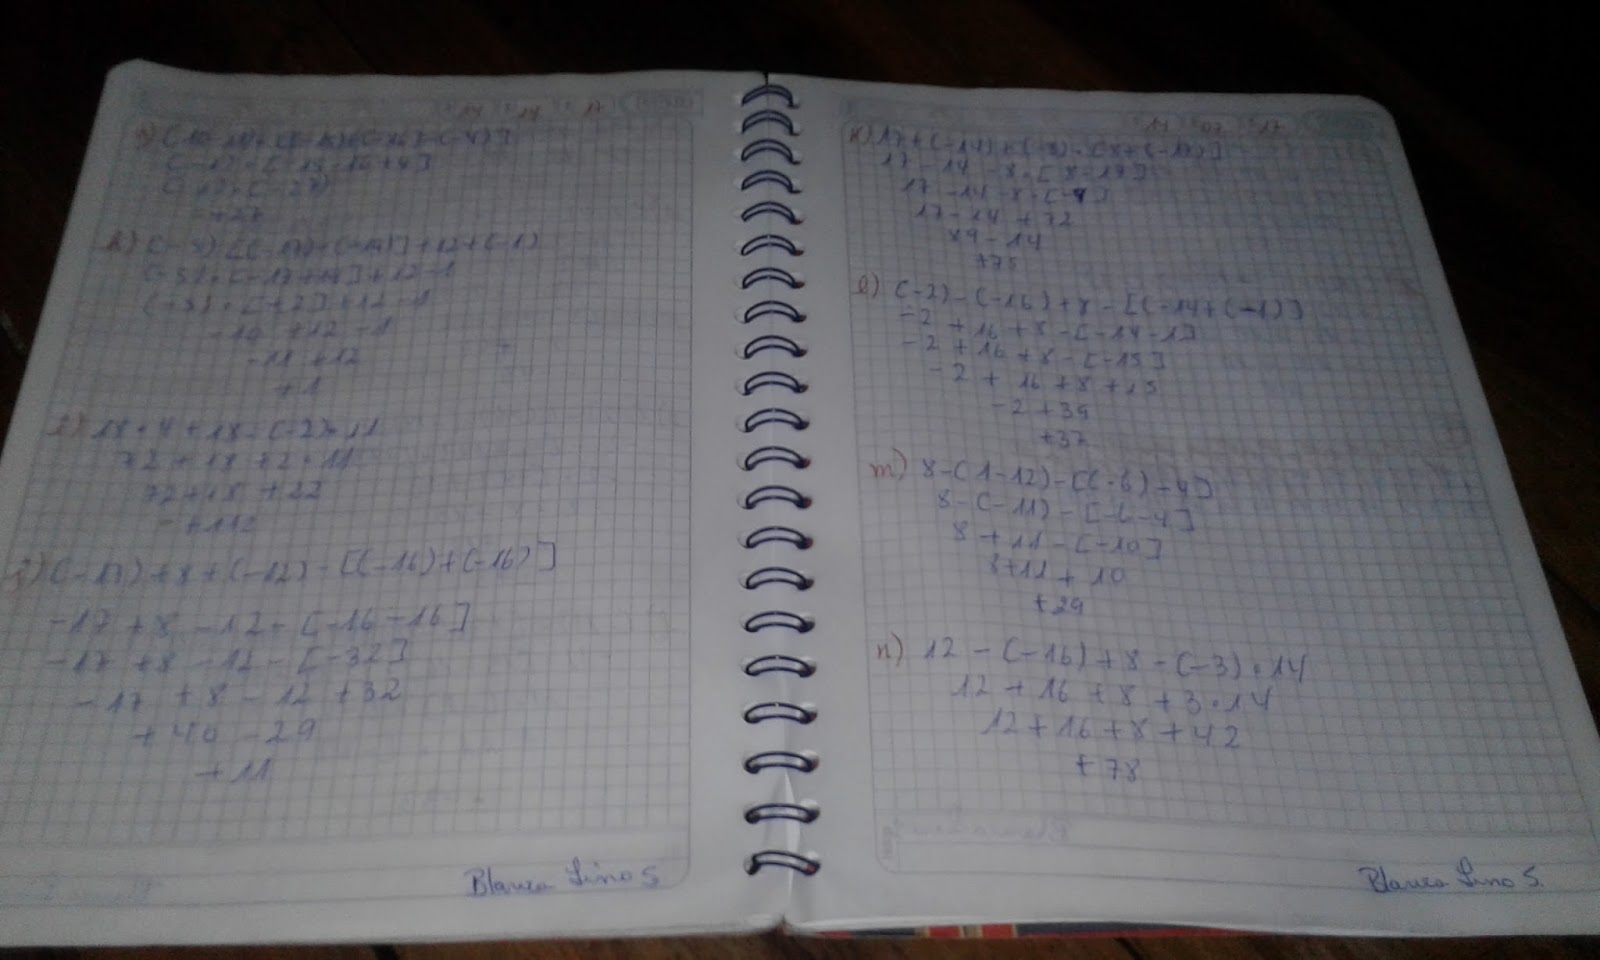 -14 -14 -17
(-17)·[-15-16+4]
+27
h) (-5)·[(-17)+(+19)]+12+(-1)
(-5)·[-17+19]+12-1
(-5)·[+2]+12-1
-10 +12 -1
-11 +12
+1
18·4+18-(-2)·11
72+18+2·11
72+18+22
+112
j) (-17)+8+(-12)-[(-16)+(-16)]
-17 +8 -12 - [-16-16]
-17 +8 -12 - [-32]
-17 +8 -12 +32
+40 -29
+11
Blanca Lino S
17+(-14)+(-8)·[8+(-17)]
17-14-8·[8-17]
17-14-8·[-9]
17-14+72
89-14
+75
l) (-2)-(-16)+8-[(-14+(-1)]
-2+16+8-[-14-1]
-2+16+8-[-15]
-2+16+8+15
-2+39
+37
m) 8-(1-12)-[(-6)-4]
8-(-11)-[-6-4]
8+11-[-10]
8+11+10
+29
n) 12-(-16)+8-(-3)·14
12+16+8+3·14
12+16+8+42
+78
Blanca Lino S.